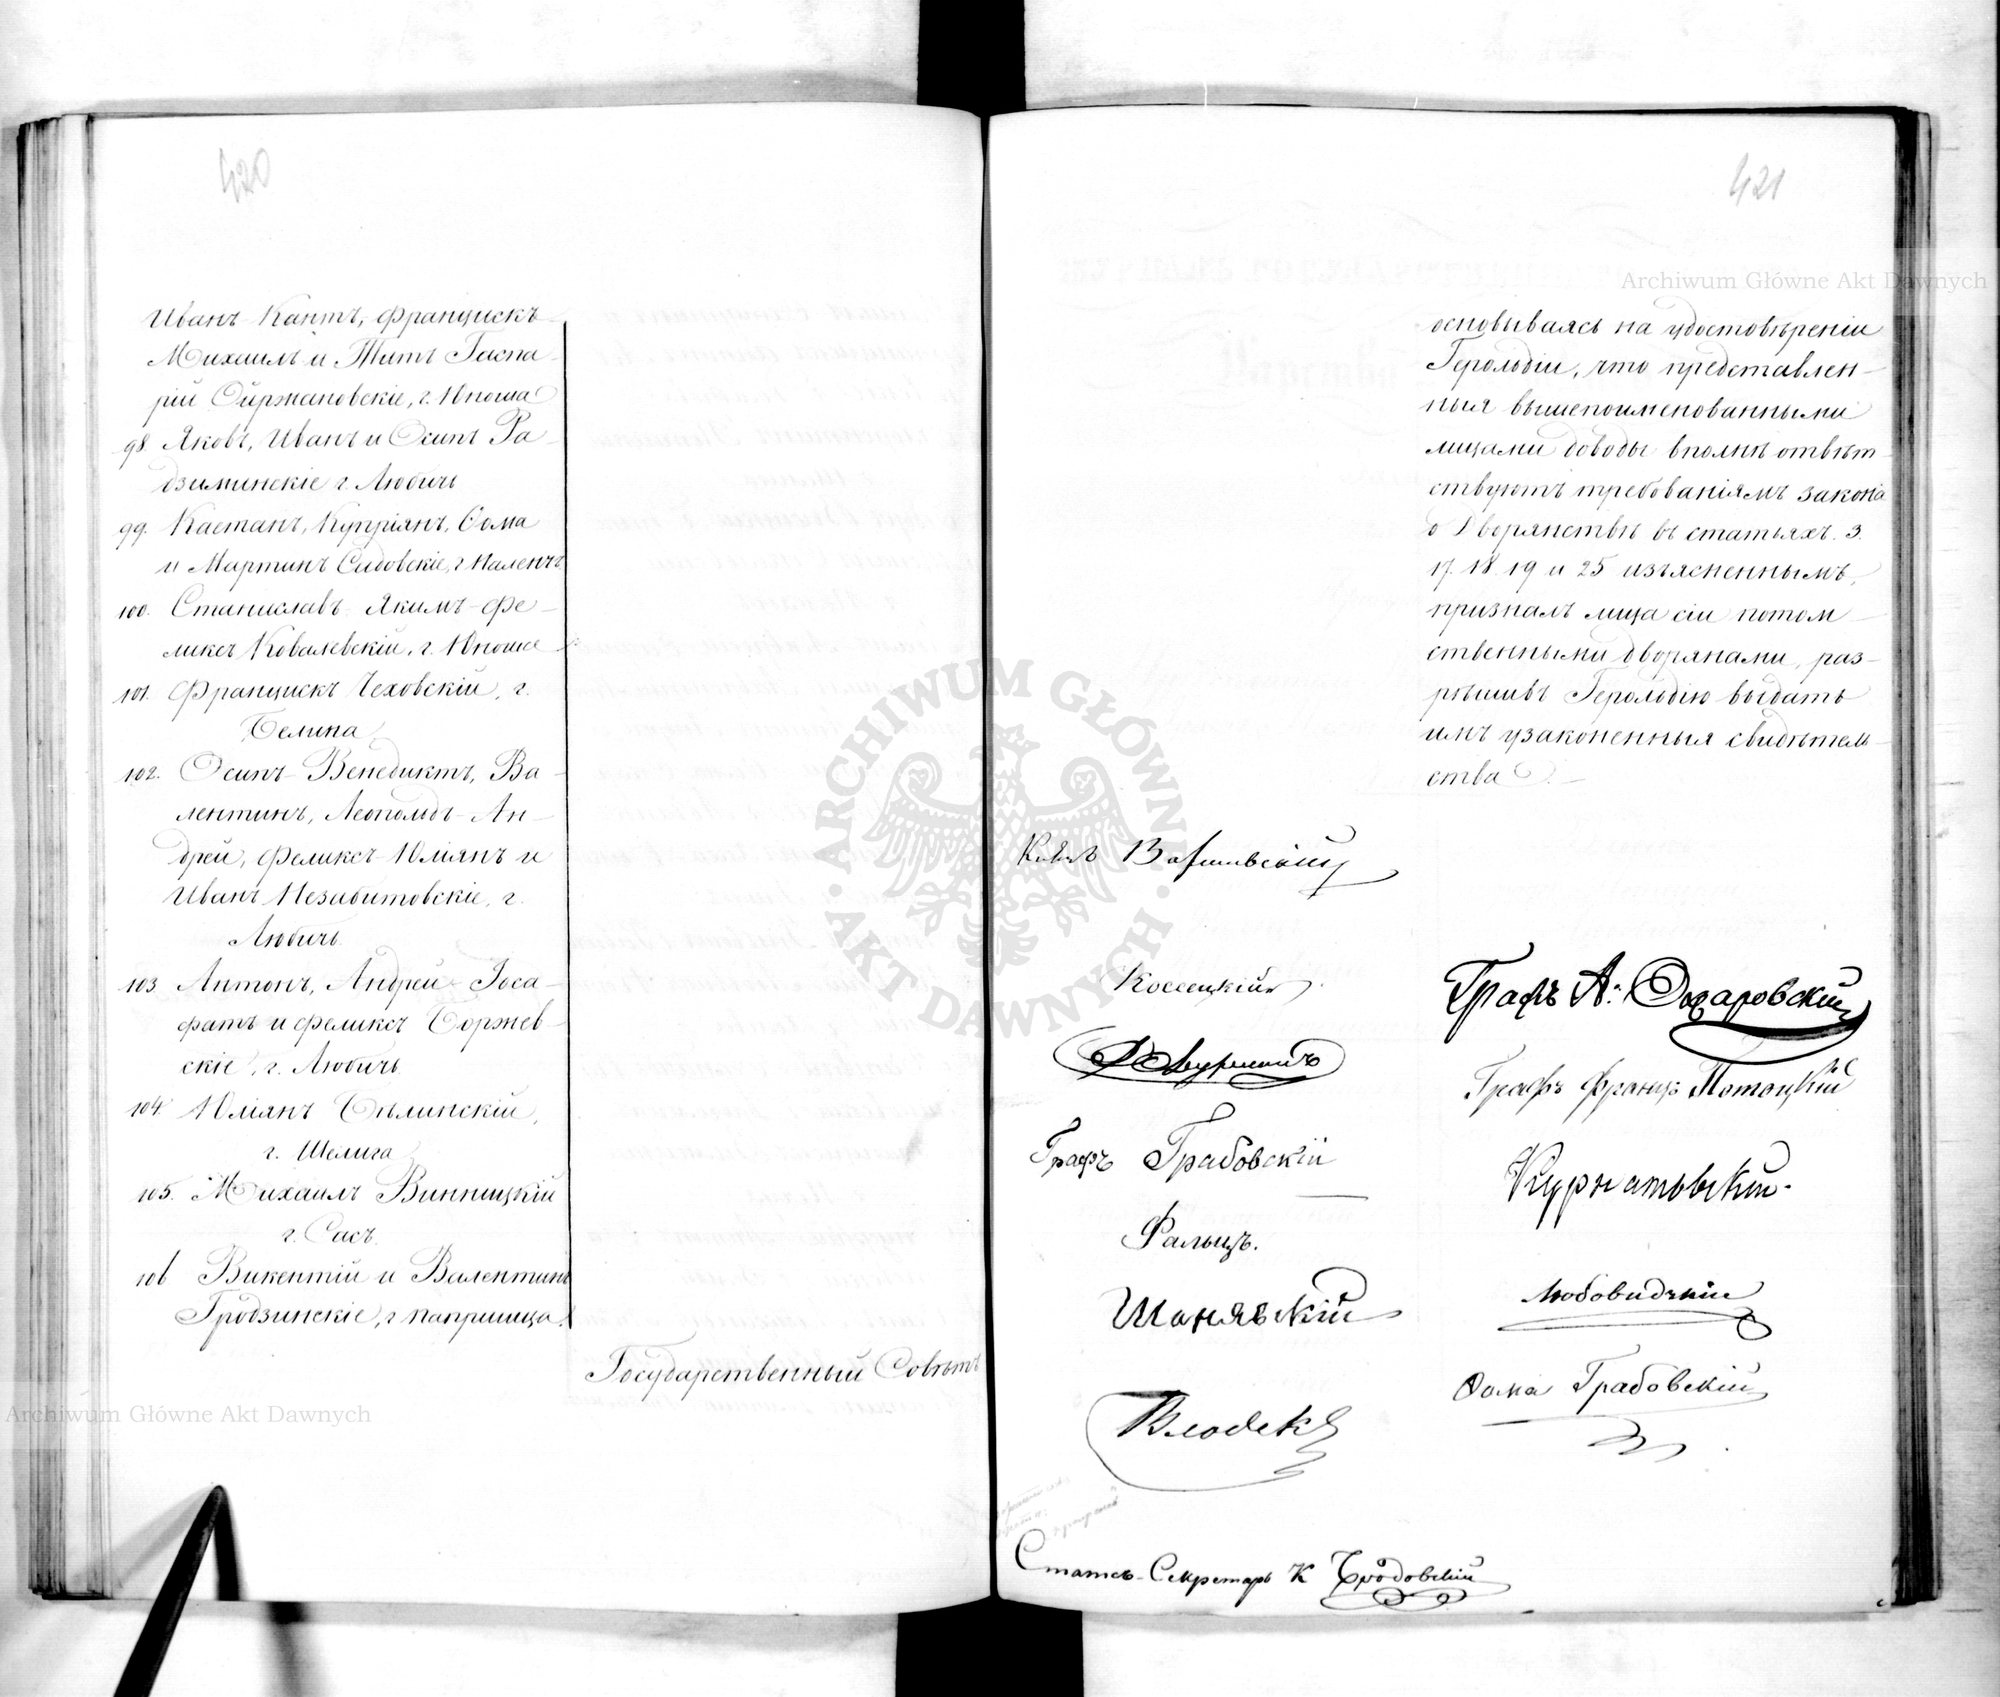 420
Иванъ Кантъ, Францискъ
Михаилъ и Титъ Гаспа-
рій Ойржановскіе, г. Юноша
98. Яковъ, Иванъ и Осипъ Ра-
дзиминскіе г. Любичь
99. Каетанъ, Купріянъ, Ѳома
и Мартинъ Садовскіе, г. Наленчъ
100. Станиславъ Якимъ Фе-
ликсъ Ковалевскій, г. Юноша
101. Францискъ Чеховскій, г.
Белина
102. Осипъ Венедиктъ, Ва-
лентинъ, Леопольдъ Ан-
дрей, Феликсъ Юліянъ и
Иванъ Незабитовскіе, г.
Любичь
103 Антонъ, Андрей Іоса-
фатъ и Феликсъ Боржев-
скіе, г. Любичь
104 Юліянъ Бѣлинскій,
г. Шелига
105. Михаилъ Винницкій
г. Сасъ.
106 Викентій и Валентинъ
Гродзинскіе, г. Папршица.
Государственный Совѣтъ
421
основываясь на удостовѣреніи
Герольдіи, что представлен-
ныя вышепоименованными
лицами доводы вполнѣ отвѣт-
ствуютъ требованіямъ закона
о Дворянствѣ въ статьяхъ. 3.
17. 18. 19 и 25 изъясненнымъ,
призналъ лица сіи потом-
ственными дворянами, раз-
рѣшивъ Герольдію выдать
имъ узаконенныя свидѣтель-
ства.
Князь Варшавскій
Коссецкій
Графъ А. Ожаровскій
Графъ Франц: Потоцкій
Графъ Грабовскій
Курнатовскій.
Фальцъ.
Шанявскій
Любовидзкій
Влодекъ
Ѳома Грабовскій
Статсъ-Секретарь К Бродовскій
Archiwum Główne Akt Dawnych
Archiwum Główne Akt Dawnych
ARCHIWUM GŁÓWNE AKT DAWNYCH